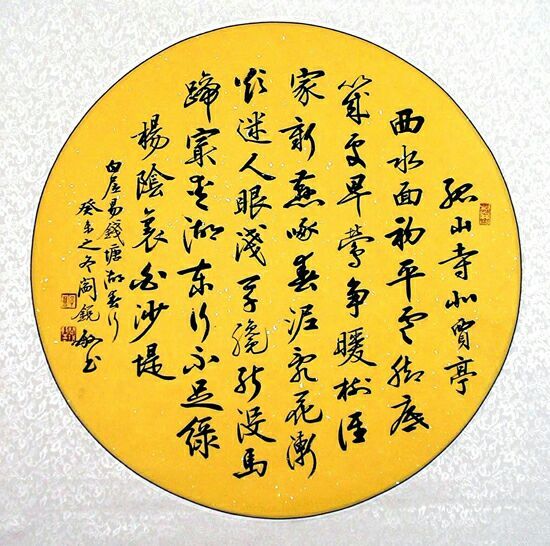 孤山寺北賈亭
西水面初平雲腳底
幾處早鶯爭暖樹誰
家新燕啄春泥亂花漸
欲迷人眼淺草纔能沒馬
蹄最愛湖東行不足綠
楊陰裏白沙堤
白居易錢塘湖春行
癸未之冬銳敏书